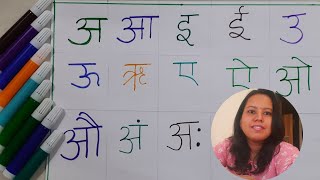 अ आ इ ई उ
ऊ ऋ ए ऐ ओ
औ अं अः